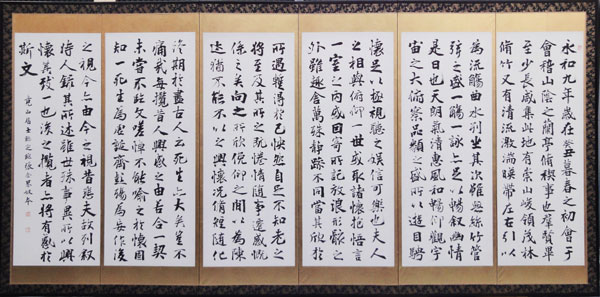 永和九年歲在癸丑暮春之初會于
會稽山陰之蘭亭脩稧事也羣賢畢
至少長咸集此地有崇山峻領茂林
脩竹又有清流激湍暎帶左右引以
為流觴曲水列坐其次雖無絲竹管
弦之盛一觴一詠亦足以暢敘幽情
是日也天朗氣清惠風和暢仰觀宇
宙之大俯察品類之盛所以遊目騁
懷足以極視聽之娛信可樂也夫人
之相與俯仰一世或取諸懷抱悟言
一室之內或因寄所託放浪形骸之
外雖趣舍萬殊靜躁不同當其欣於
所遇蹔得於己怏然自足不知老之
將至及其所之既惓情隨事遷感慨
係之矣向之所欣俛仰之間以為陳
迹猶不能不以之興懷況脩短隨化
終期於盡古人云死生亦大矣豈不
痛哉每攬昔人興感之由若合一契
未嘗不臨文嗟悼不能喻之於懷固
知一死生為虛誕齊彭殤為妄作後
之視今亦由今之視昔悲夫故列敘
時人錄其所述雖世殊事異所以興
懷其致一也後之攬者亦將有感於
斯文